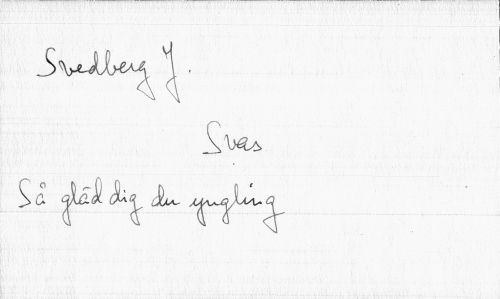 Svedberg J.
Svas
Så gläd dig du yngling